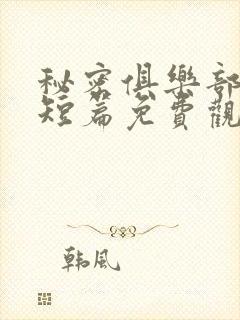 秘密俱樂部
短篇免費觀
韩風